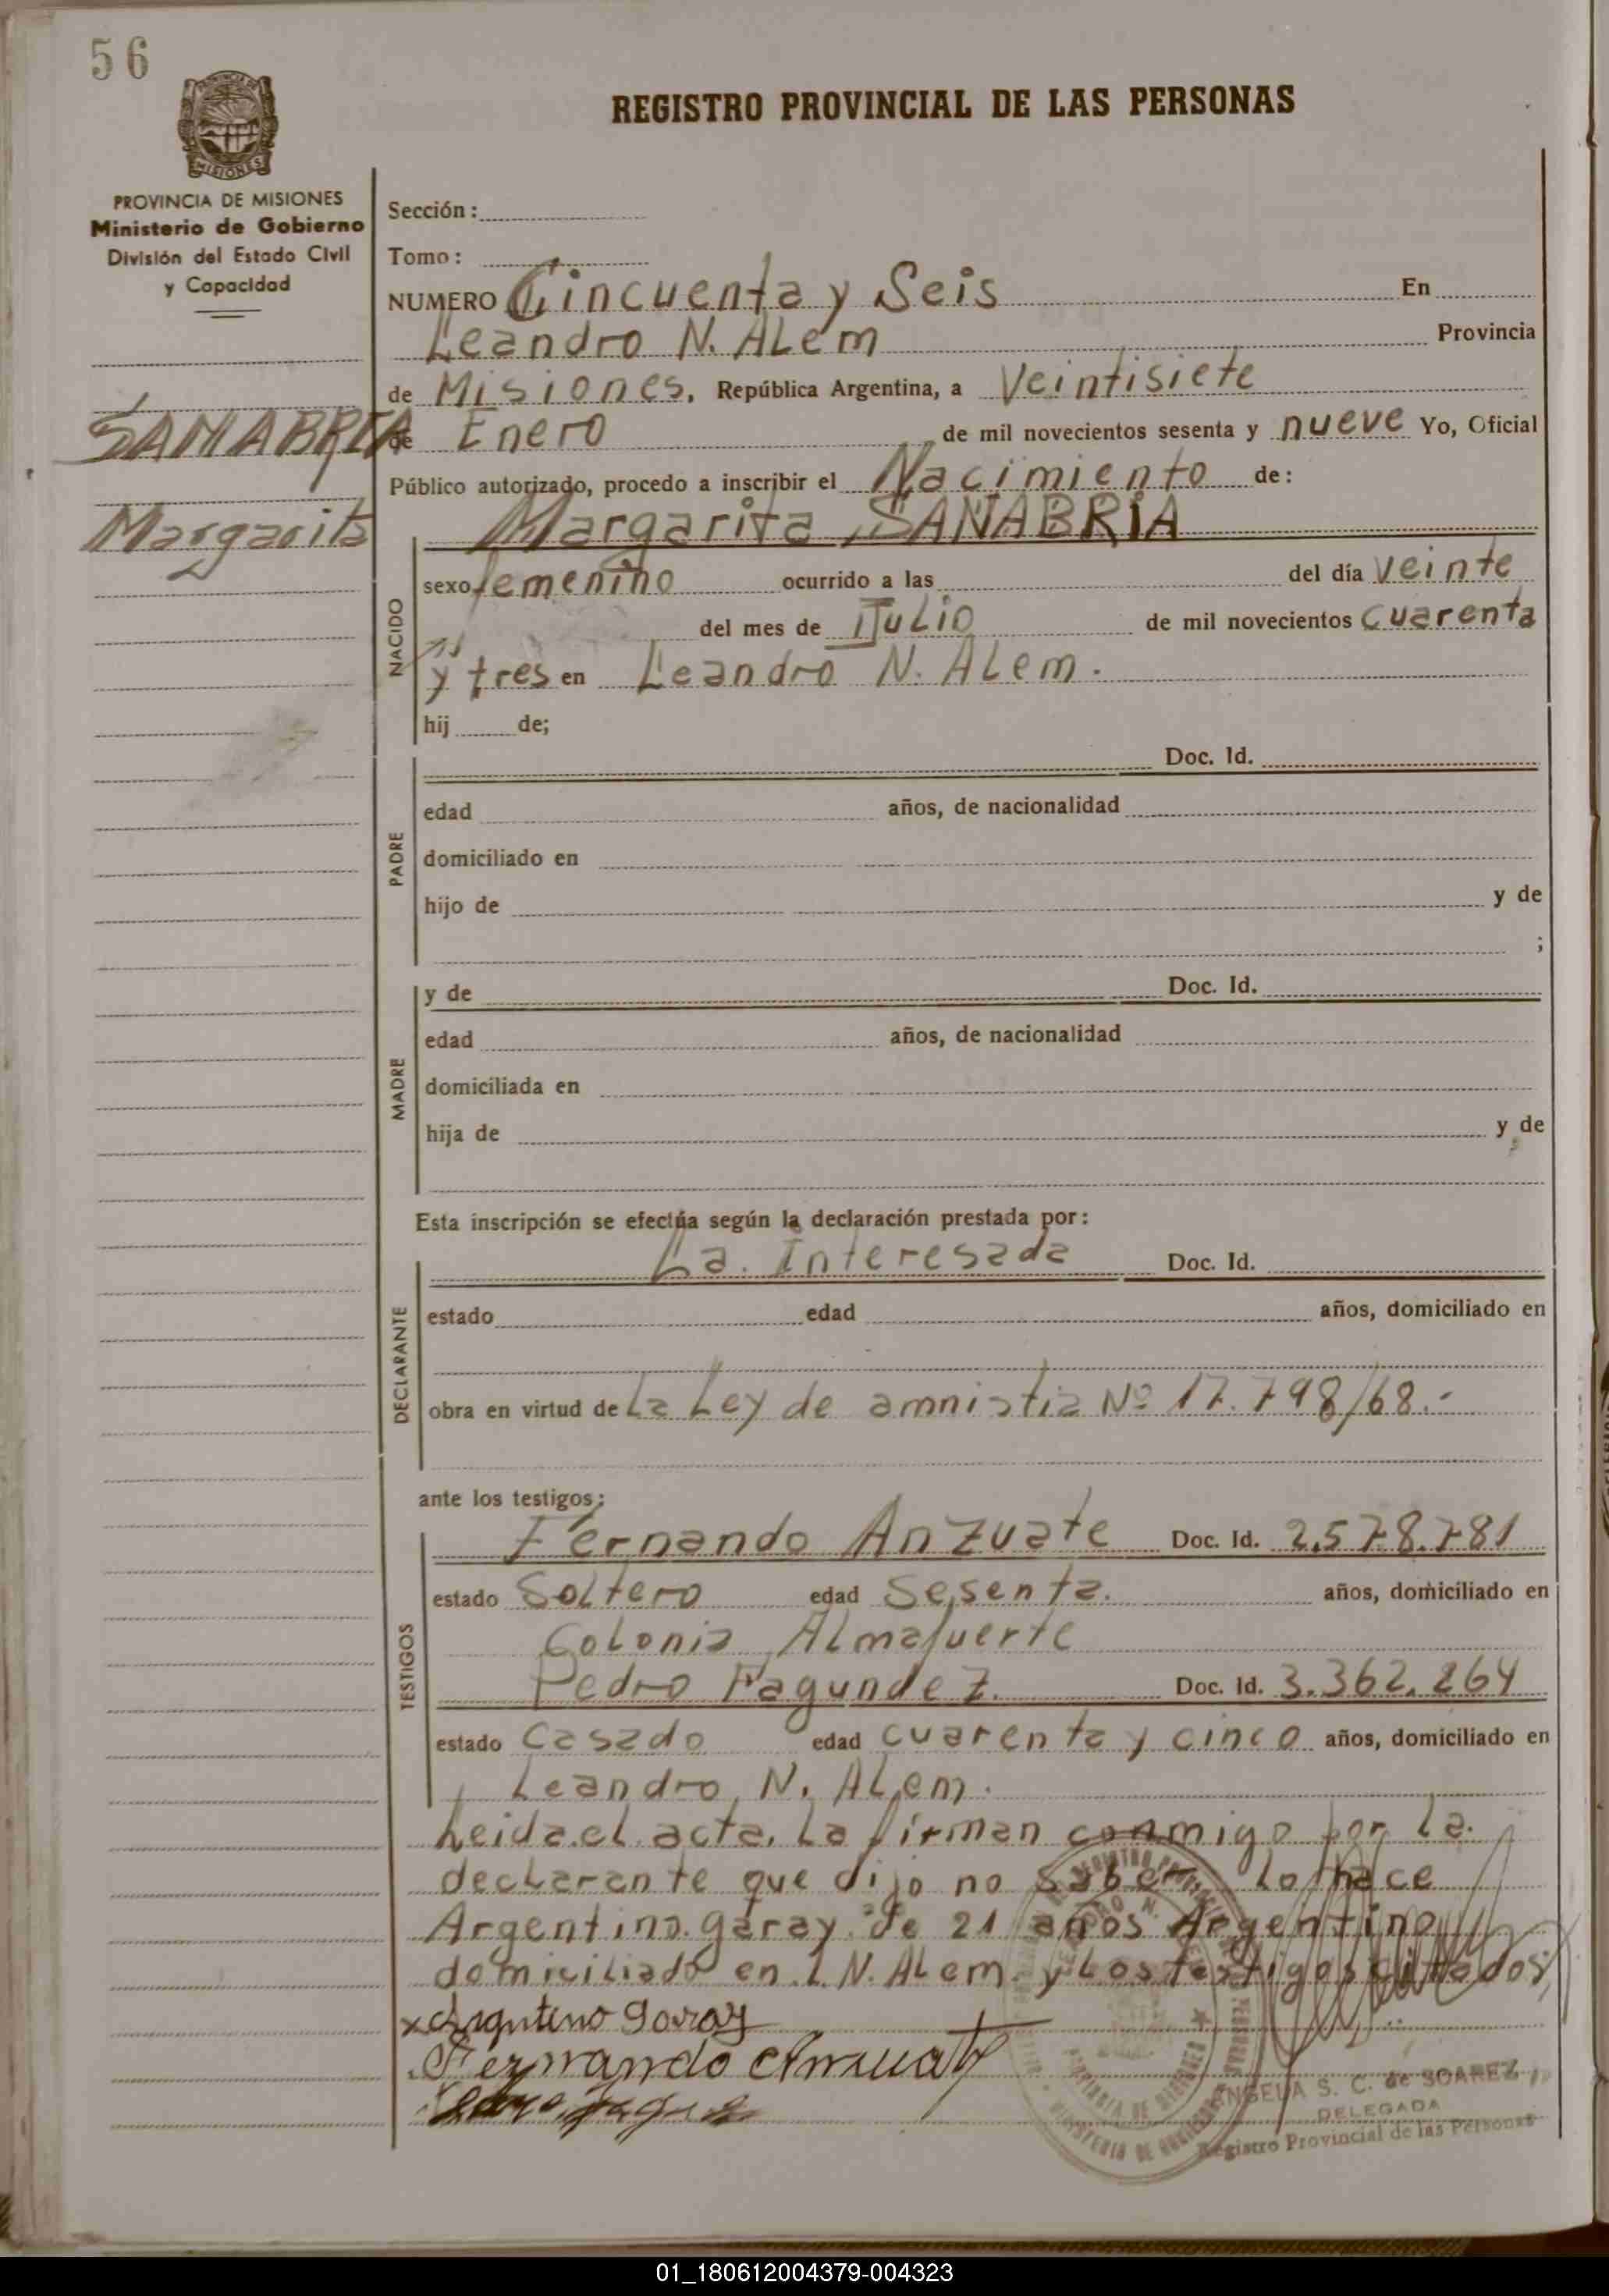 56
PROVINCIA DE MISIONES
Ministerio de Gobierno
División del Estado Civil
y Capacidad
SANABRIA
Margarita
REGISTRO PROVINCIAL DE LAS PERSONAS
Sección:
Tomo:
NUMERO Cincuenta y Seis En
Leandro N. ALem Provincia
de Misiones, República Argentina, a Veintisiete
de Enero de mil novecientos sesenta y nueve Yo, Oficial
Público autorizado, procedo a inscribir el Nacimiento de:
Margarita SANABRIA
NACIDO
sexo femenino ocurrido a las del día Veinte
del mes de Julio de mil novecientos Cuarenta
y tres en Leandro N. ALem.
hij de;
PADRE
Doc. Id.
edad años, de nacionalidad
domiciliado en
hijo de y de
;
MADRE
y de Doc. Id.
edad años, de nacionalidad
domiciliada en
hija de y de
Esta inscripción se efectúa según la declaración prestada por:
DECLARANTE
La Interesada Doc. Id.
estado edad años, domiciliado en
obra en virtud de La Ley de amnistia Nº 17.798/68.-
ante los testigos:
TESTIGOS
Fernando Anzuate Doc. Id. 2.578.781
estado Soltero edad Sesenta. años, domiciliado en
Colonia Almafuerte
Pedro Fagundez. Doc. Id. 3.362.264
estado Casado edad cuarenta y cinco años, domiciliado en
Leandro N. ALem.
Leida el acta, La firman conmigo por La
declarante que dijo no saber Lo hace
Argentino garay de 21 años Argentino
domiciliado en L. N. ALem y Los testigos citados
x Argentino Garay
Fernando Anzuate
ANGELA S. C. de SOAREZ
DELEGADA
Registro Provincial de las Personas
01_180612004379-004323